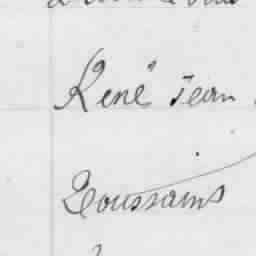 René Jean
Toussains